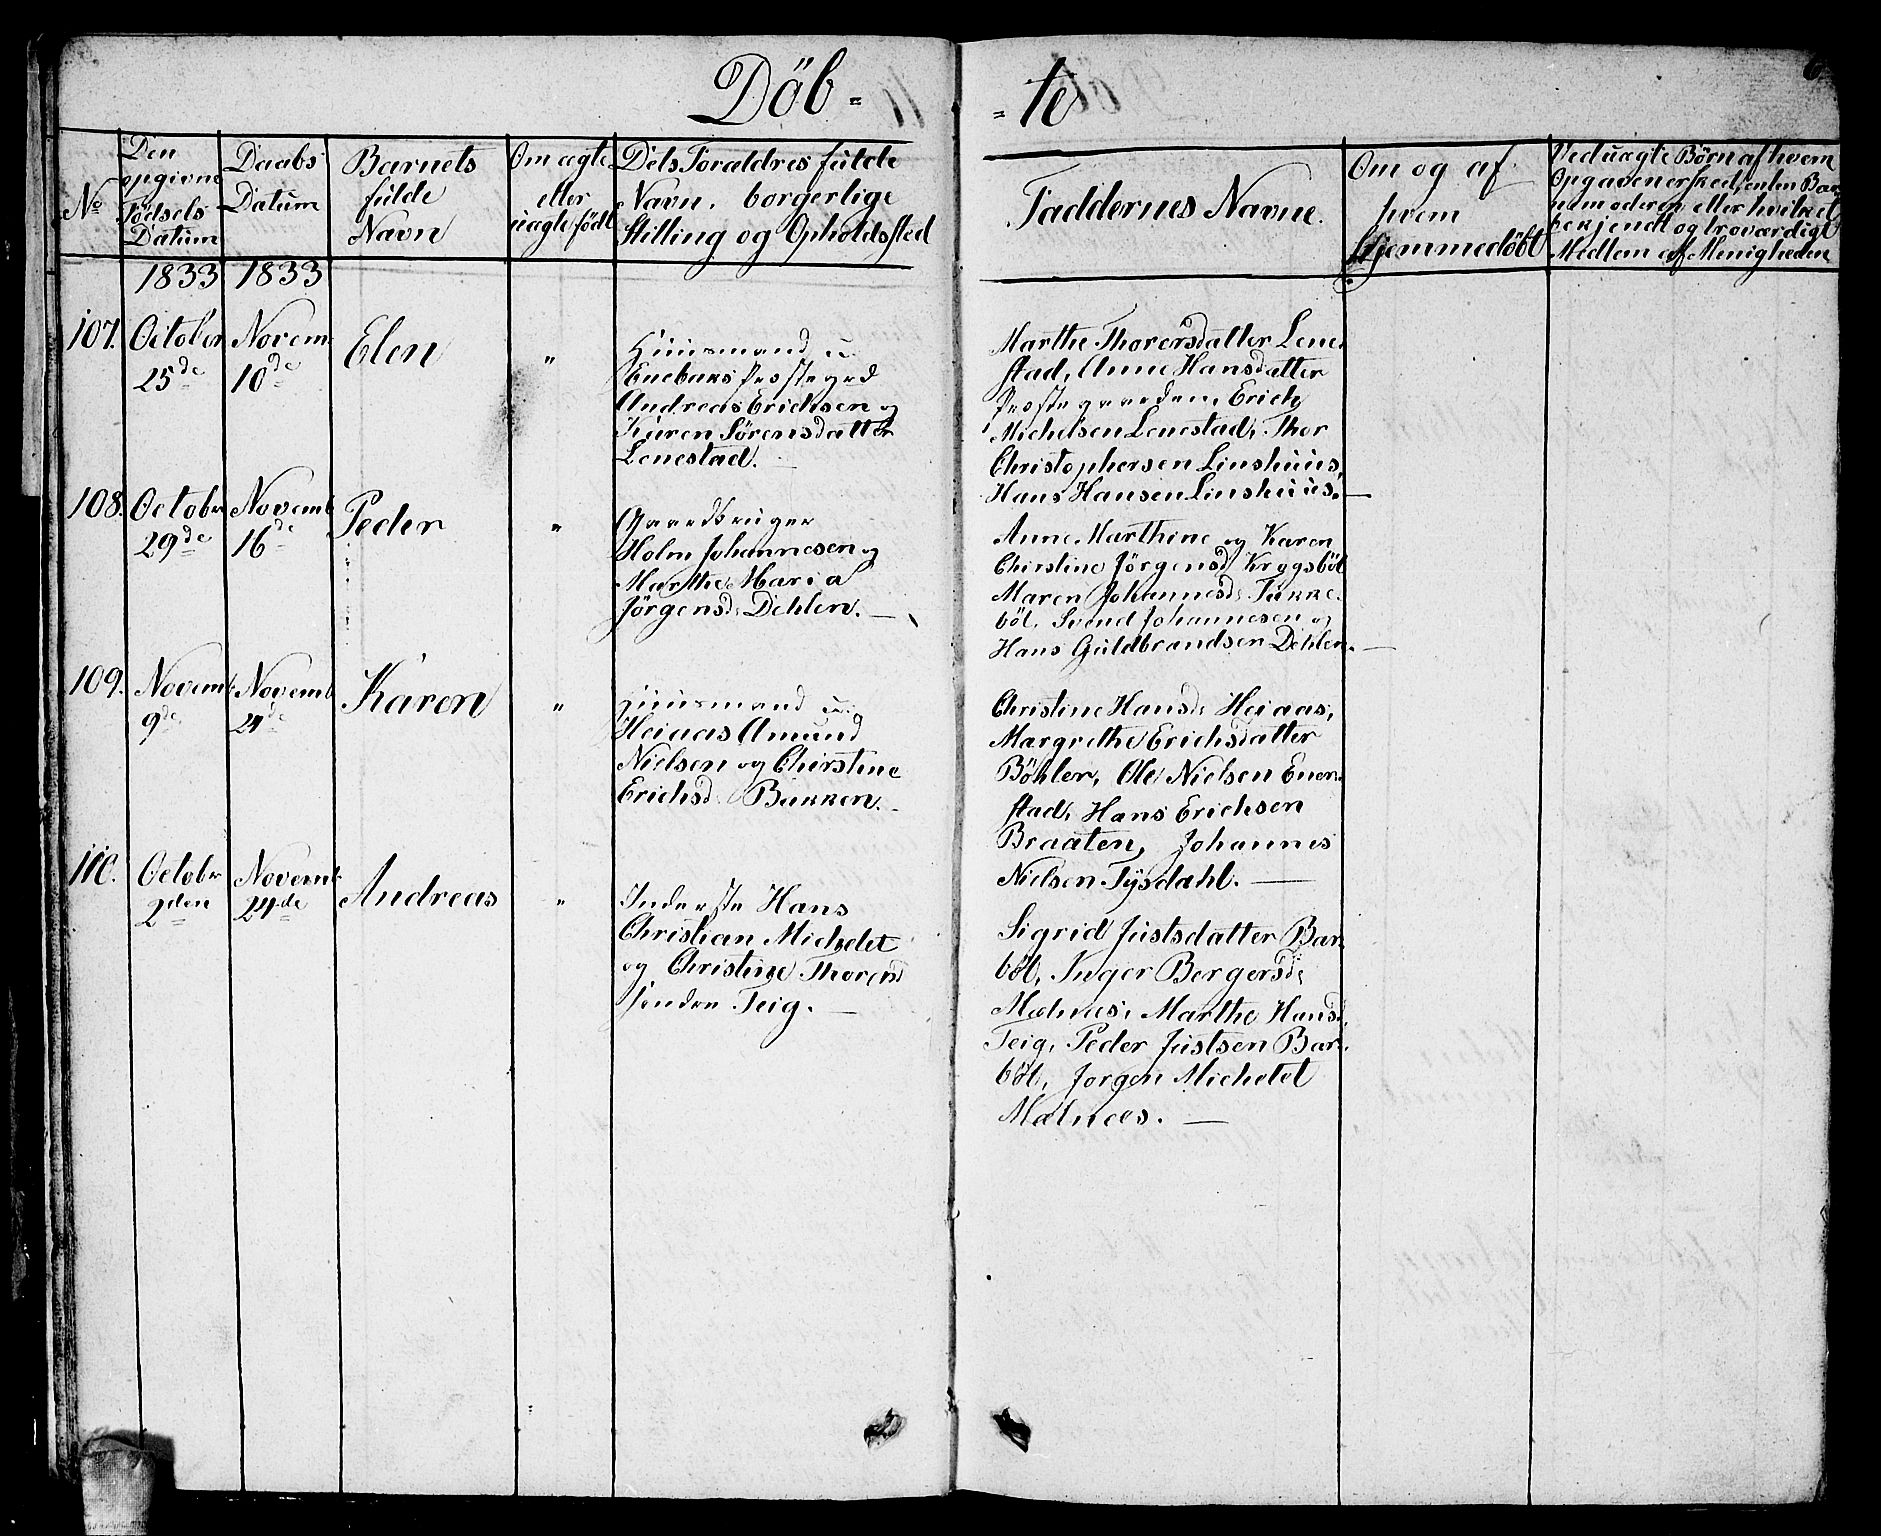 Döb-
-te
6
No
Den
opgivne
Födsels
Datum
Daabs
Datum
Barnets
fulde
Navn
Om ægte
eller
uægte födt
Dets Foraldres fulde
Navn. borgerlige
Stilling og Opholdssted
Faddernes Navne.
Om og af
hvem
hjemmedöbt
Ved uagte Börn af hvem
Opgaven er sked, enten Bar
nemoderen eller hvilket
bekjendt og troværdigt
Medlem af Menigheden
1833
1833
107.
October
25de
Novem
10de
Elen
"
Huusmand u.
Enebaks Prestegrd
Andreas Erichsen og
Karen Sörensdatter
Lenestad.
Marthe Thorersdatter Lene
stad, Anne Hansdatter
Prestegaarden, Erich
Michelsen Lenestad, Thor
Christophersen Linshuus,
Hans Hansen Linshuus.
108.
Octobr
29de
Novemb
16de
Peder
"
Gaardbruger
Holm Johannesen og
Marthe Maria
Jörgensd: Dehlen.
Anne Marthine og Karen
Chirstine Jörgensd Kryggsböl
Maren Johannesd: Takke
böl, Svend Johannesen og
Hans Guldbrandsen Dehlen.
109.
Novemb
9de
Novemb
24de
Karen
"
Huusmand u.
Heiaas Amund
Nielsen og Chirstine
Erichsd. Bakken.
Christine Hansd: Heiaas,
Margrethe Erichsdatter
Böhler, Ole Nielsen Ener
stad, Hans Erichsen
Braaten, Johannes
Nielsen Tysdahl.
110.
Octobr
2den
Novemb
24de
Andreas
"
Inderste Hans
Christian Michelet
og Christine Thorend
Teig.
Sigrid Justsdatter Bar
böl, Inger Bergersd:
Mælnes, Marthe Hansd.
Teig, Peder Justsen Bar
böl, Jorgen Michelet
Mælnees.